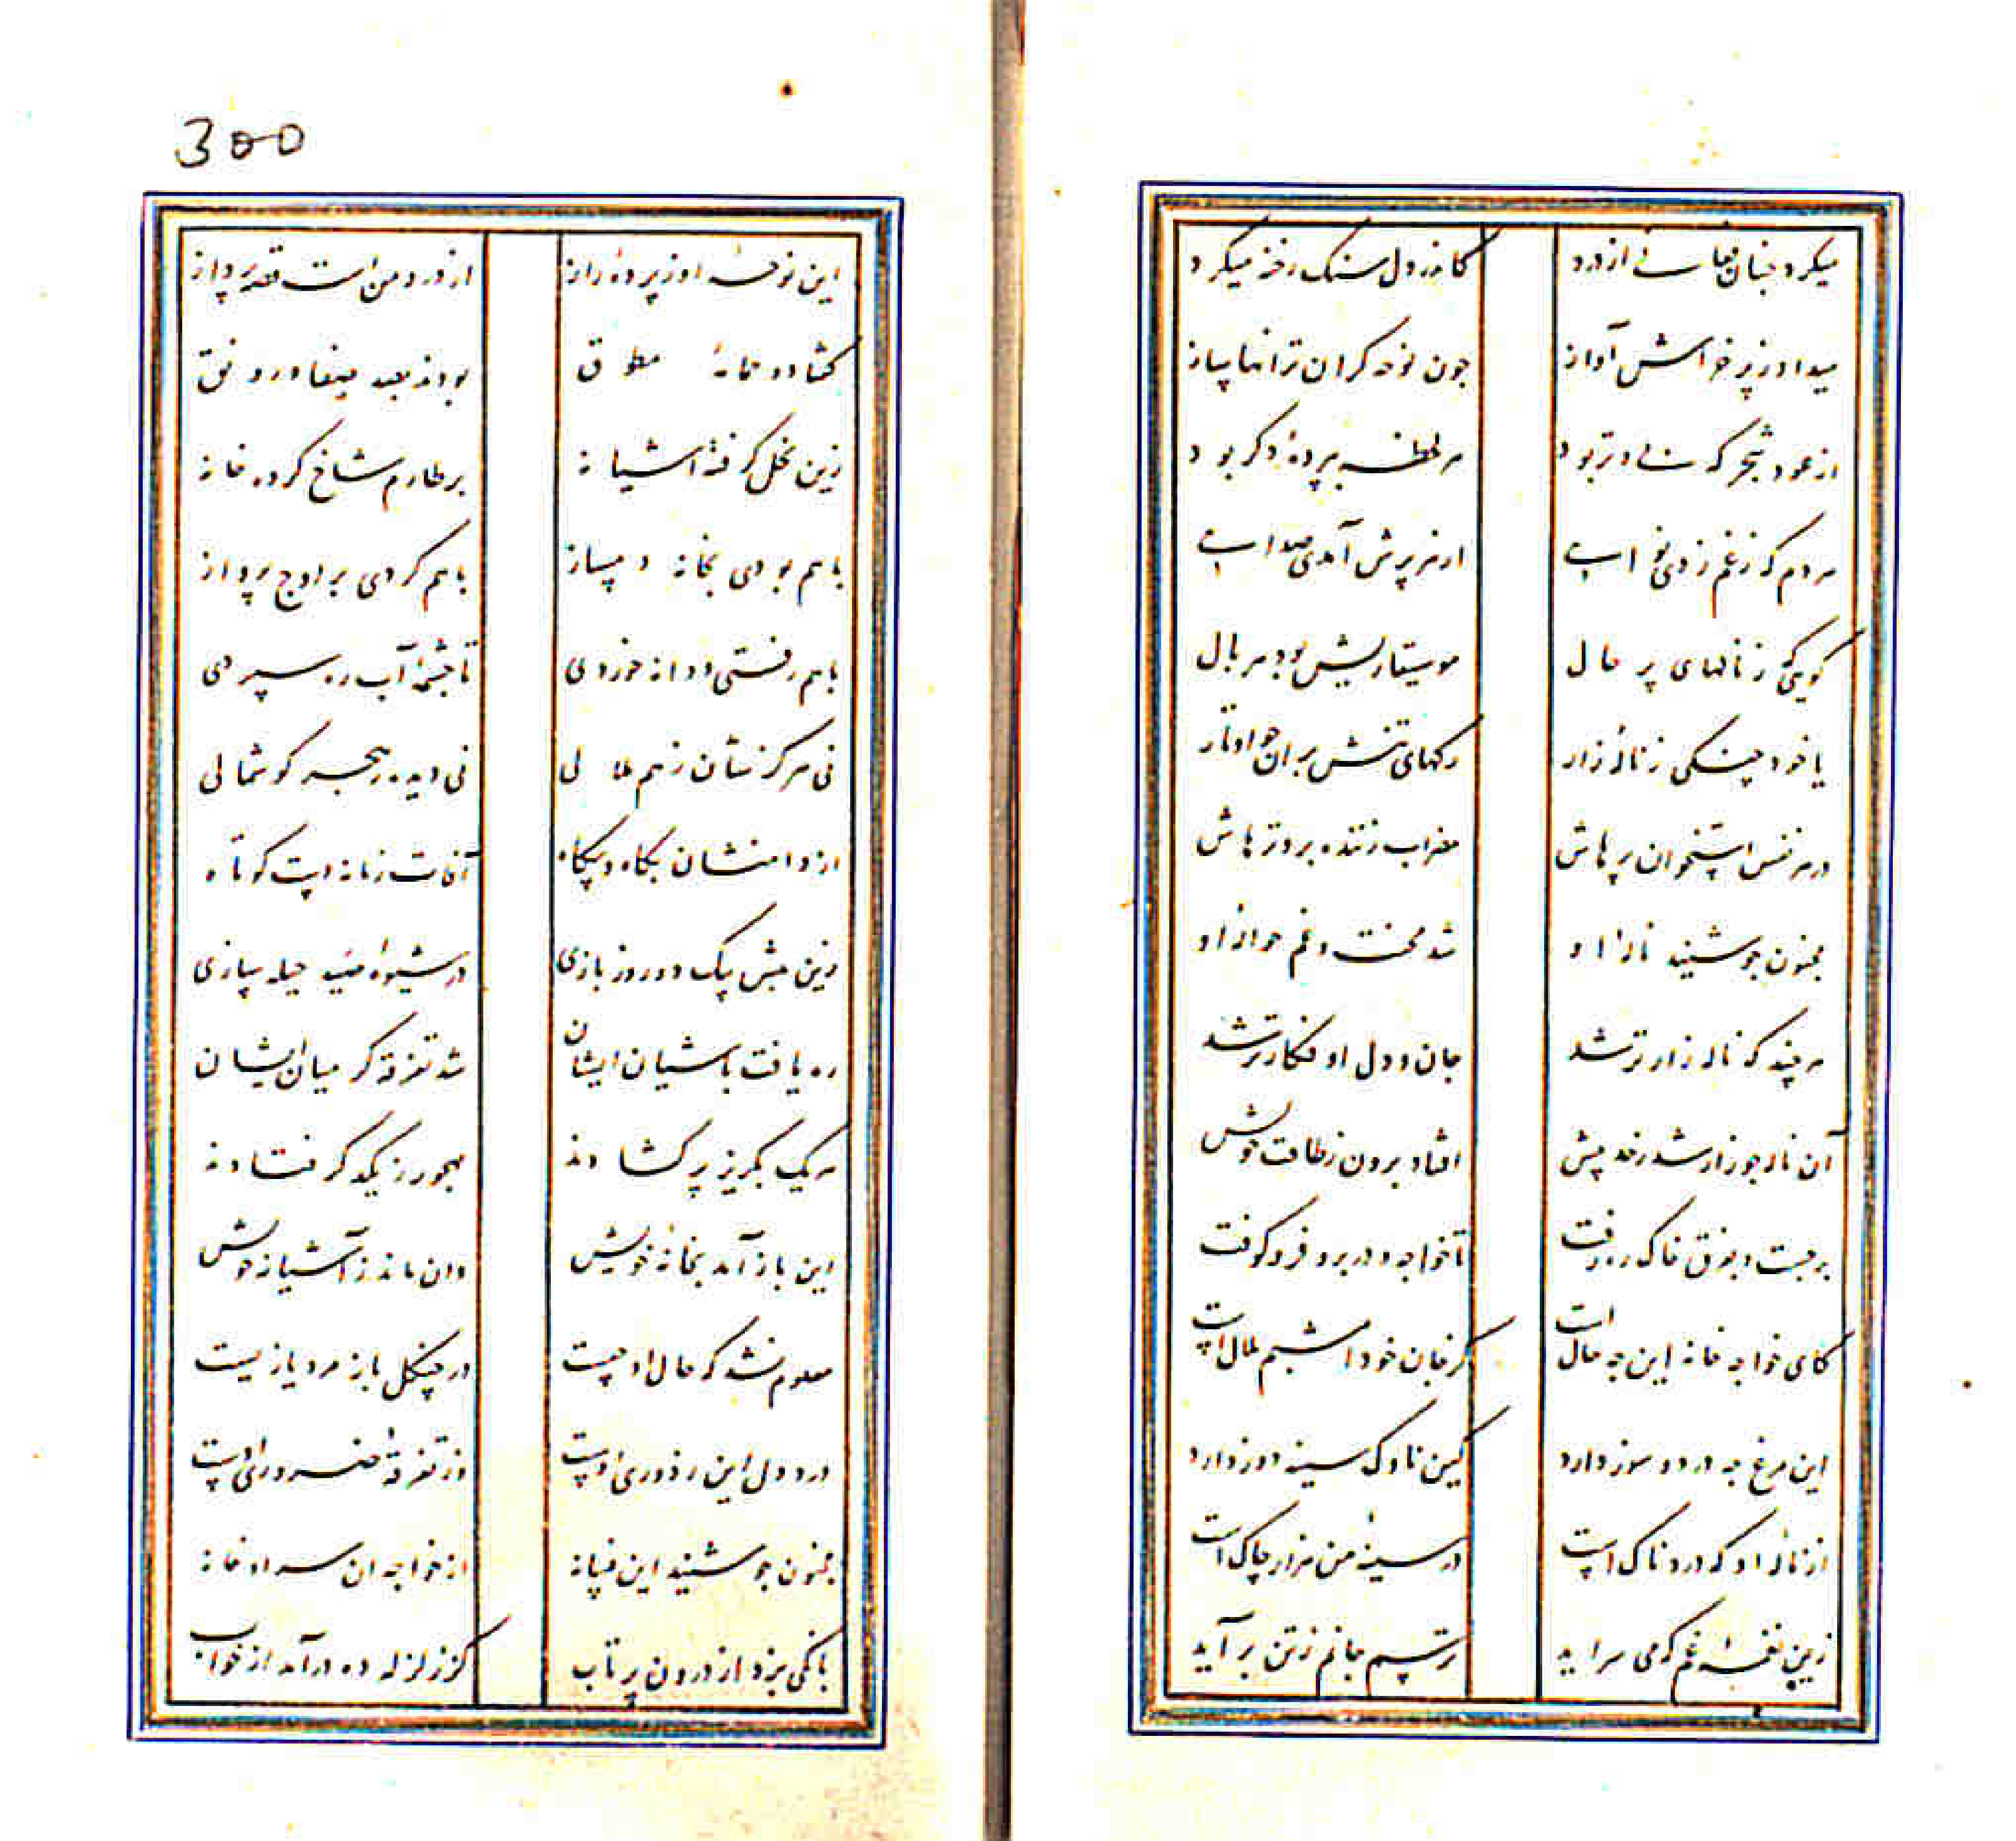 میکرد چنان فغانی از درد کاندر دل سنک رخنه میکرد
میداد ز پر خراش آواز چون نوحه کران ترانها ساز
از عود شجر که بی وتر بود هر لحظه به پردهٔ دکر بود
هر دم که ز غم زدی نوایی از هر پرش آمدی صدایی
کویی ز نالهای پر حال موسیقاریش بود هر بال
یا خود چنکی ز نالهٔ زار رکهای تنش بران چو اوتار
در هر نفس استخوان پرهاش مضراب زننده بر وترهاش
مجنون چو شنید نالهٔ او شد محنت و غم حوالهٔ او
هر چند که ناله زارتر شد جان و دل او فکارتر شد
آن ناله چو زار شد ز حد پیش افتاد برون ز طاقت خویش
برجست و بفرق خاک ره رفت تا خواجه و در برو فرو کوفت
کای خواجه خانه این چه حالست کز جان خود امشبم ملالست
این مرغ چه درد و سوز دارد کین ناوک سینه دوز دارد
از نالهٔ او که دردناک است در سینهٔ من هزار چاک است
زین نغمهٔ غم که می سراید ترسم جانم ز تن برآید
300
این نوحهٔ او ز پردهٔ راز از درد من است قصه پرداز
کفتا دو حمامهٔ مطوق بودند بصد صفا و رونق
زین نخل کرفته آشیانه بر طارم شاخ کرده خانه
با هم بودی بخانه دمساز با هم کردی بر اوج پرواز
با هم رفتی و دانه خوردی تا چشمهٔ آب ره سپردی
نی هرکز شان ز هم ملالی نی دیده ز هجر کوشمالی
از دامنشان بکاه و بیکاه آفات زمانه دست کوتاه
زین پیش بیک دو روز بازی در شیوهٔ صید حیله سازی
ره یافت بآشیان ایشان شد تفرقه کر میان ایشان
هر یک بکریز پر کشادند مهجور ز یکدکر فتادند
این باز آمد بخانهٔ خویش وان ماند ز آشیانهٔ خویش
معلوم نشد که حال او چیست در چنکل باز مرد یا زیست
درد دل این ز دوری اوست وز تفرقهٔ ضروری اوست
مجنون چو شنید این فسانه از خواجه ان سراد خانه
بانکی بزد از درون پرتاب کز زلزله ده درآمد از خواب